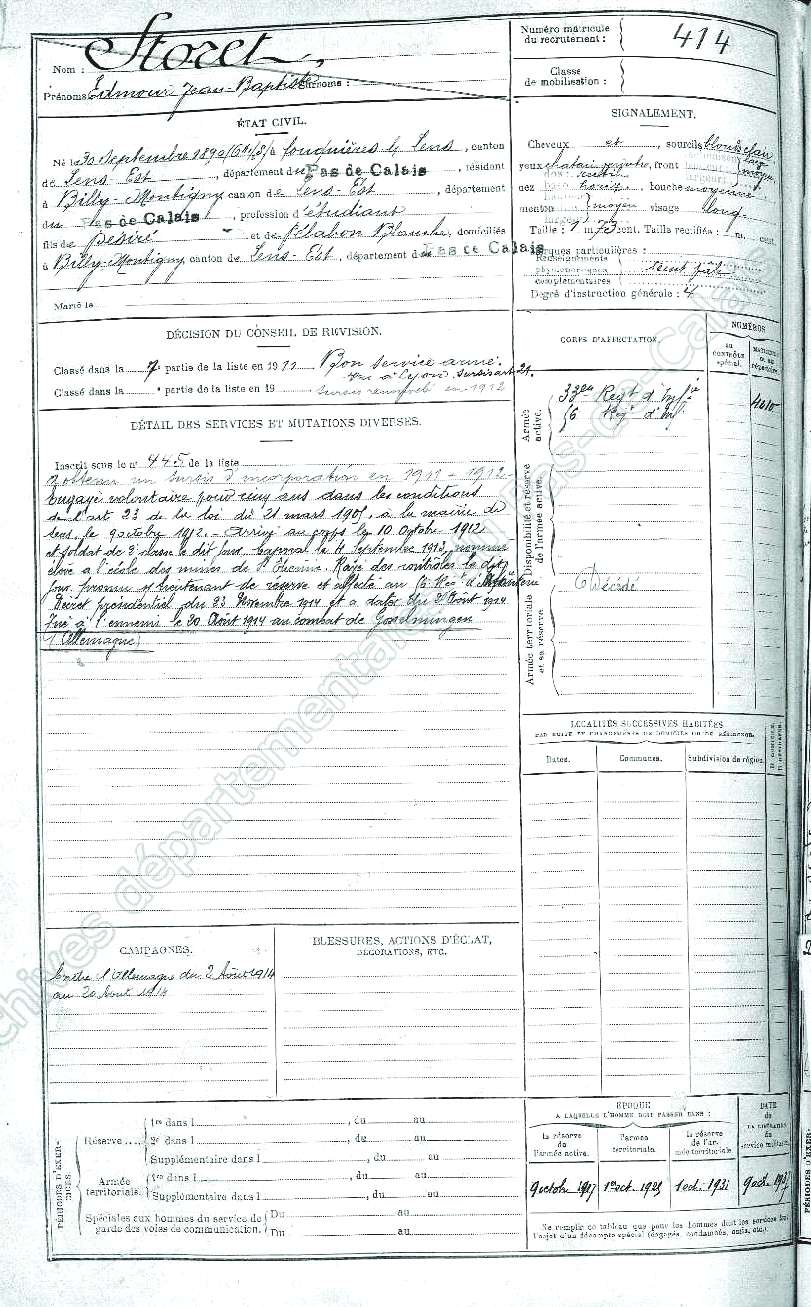 Numéro matricule
du recrutement : 414
Classe
de mobilisation :
Nom : Storet,
Prénoms : Edmour Jean-Baptiste Surnoms :
ÉTAT CIVIL.
Né le 30 Septembre 1890, à fouquières lez Lens, canton
de Lens Est, département du Pas de Calais, résident
à Billy-Montigny canton de Lens-Est, département
du Pas de Calais, profession d'étudiant
fils de Désiré et de Blanche, domiciliés
à Billy-Montigny canton de Lens-Est, département du Pas de Calais
Marié le
SIGNALEMENT.
Cheveux et, sourcils blonds clair
yeux, front
nez, bouche moyenne
menton moyen visage long
Taille : 1 m. 73 cent. Taille rectifiée : 1 m. cent.
Marques particulières :
Renseignements
physionomiques
complémentaires
Degré d'instruction générale : 4
DÉCISION DU CONSEIL DE RÉVISION.
Classé dans la partie de la liste en 1911 Bon service armé.
vu à Lyon. sursis art. 21.
Classé dans la partie de la liste en 19 sursis en 1912
DÉTAIL DES SERVICES ET MUTATIONS DIVERSES.
Inscrit sous le n° 445 de la liste
obtenu un sursis d'incorporation en 1911-1912
Engagé volontaire pour ans dans les conditions
de l'art 23 de la loi du 21 mars 1905, à la mairie de
Lens, le 9 octobre 1912. Arrivé au corps le 10 Octobre 1912
et soldat de 2e classe le dit jour. Caporal le Septembre 1913, nommé
élève à l'école des mines de St Etienne. Rayé des contrôles le dit
jour. promu s/lieutenant de réserve et affecté au d'Infanterie
Décret présidentiel du 23 Novembre 1914 et à dater du 2 Août 1914
Tué à l'ennemi le 20 Août 1914 au combat de Gosselmingen
(Allemagne)
CORPS D'AFFECTATION.
NUMÉROS
au
CONTRÔLE
spécial.
MATRICULE
ou au
répertoire.
Armée
active.
33e Regt d'Infie
Regt d'Inf.
4010
Disponibilité et réserve
de l'armée active.
Armée territoriale
et sa réserve
Décédé
LOCALITÉS SUCCESSIVES HABITÉES
PAR SUITE DE CHANGEMENTS DE DOMICILE OU DE RÉSIDENCE.
Dates.
Communes.
Subdivision de région.
D. DOMICILE.
R. RÉSIDENCE.
CAMPAGNES.
Contre l'Allemagne du 2 Août 1914
au 20 Août 1914
BLESSURES, ACTIONS D'ÉCLAT,
DÉCORATIONS, ETC.
PÉRIODES D'EXERCICES.
Réserve
1re dans l, du au
2e dans l, du au
Supplémentaire dans l, du au
Armée
territoriale.
1re dans l, du au
Supplémentaire dans l, du au
Spéciales aux hommes du service de
garde des voies de communication.
Du au
Du au
ÉPOQUE
À LAQUELLE L'HOMME DOIT PASSER DANS :
la réserve
de
l'armée active.
l'armée
territoriale.
la réserve
de l'armée territoriale.
DATE
de
LA LIBÉRATION
du
service militaire.
9 octobre 1917 1er oct. 1925 1 oct. 1931 9 oct. 1937
Ne remplir ce tableau que pour les hommes dont les services font
l'objet d'un décompte spécial (engagés, condamnés, omis, etc.).
PÉRIODES D'EXER-
Archives départementales du Pas-de-Calais